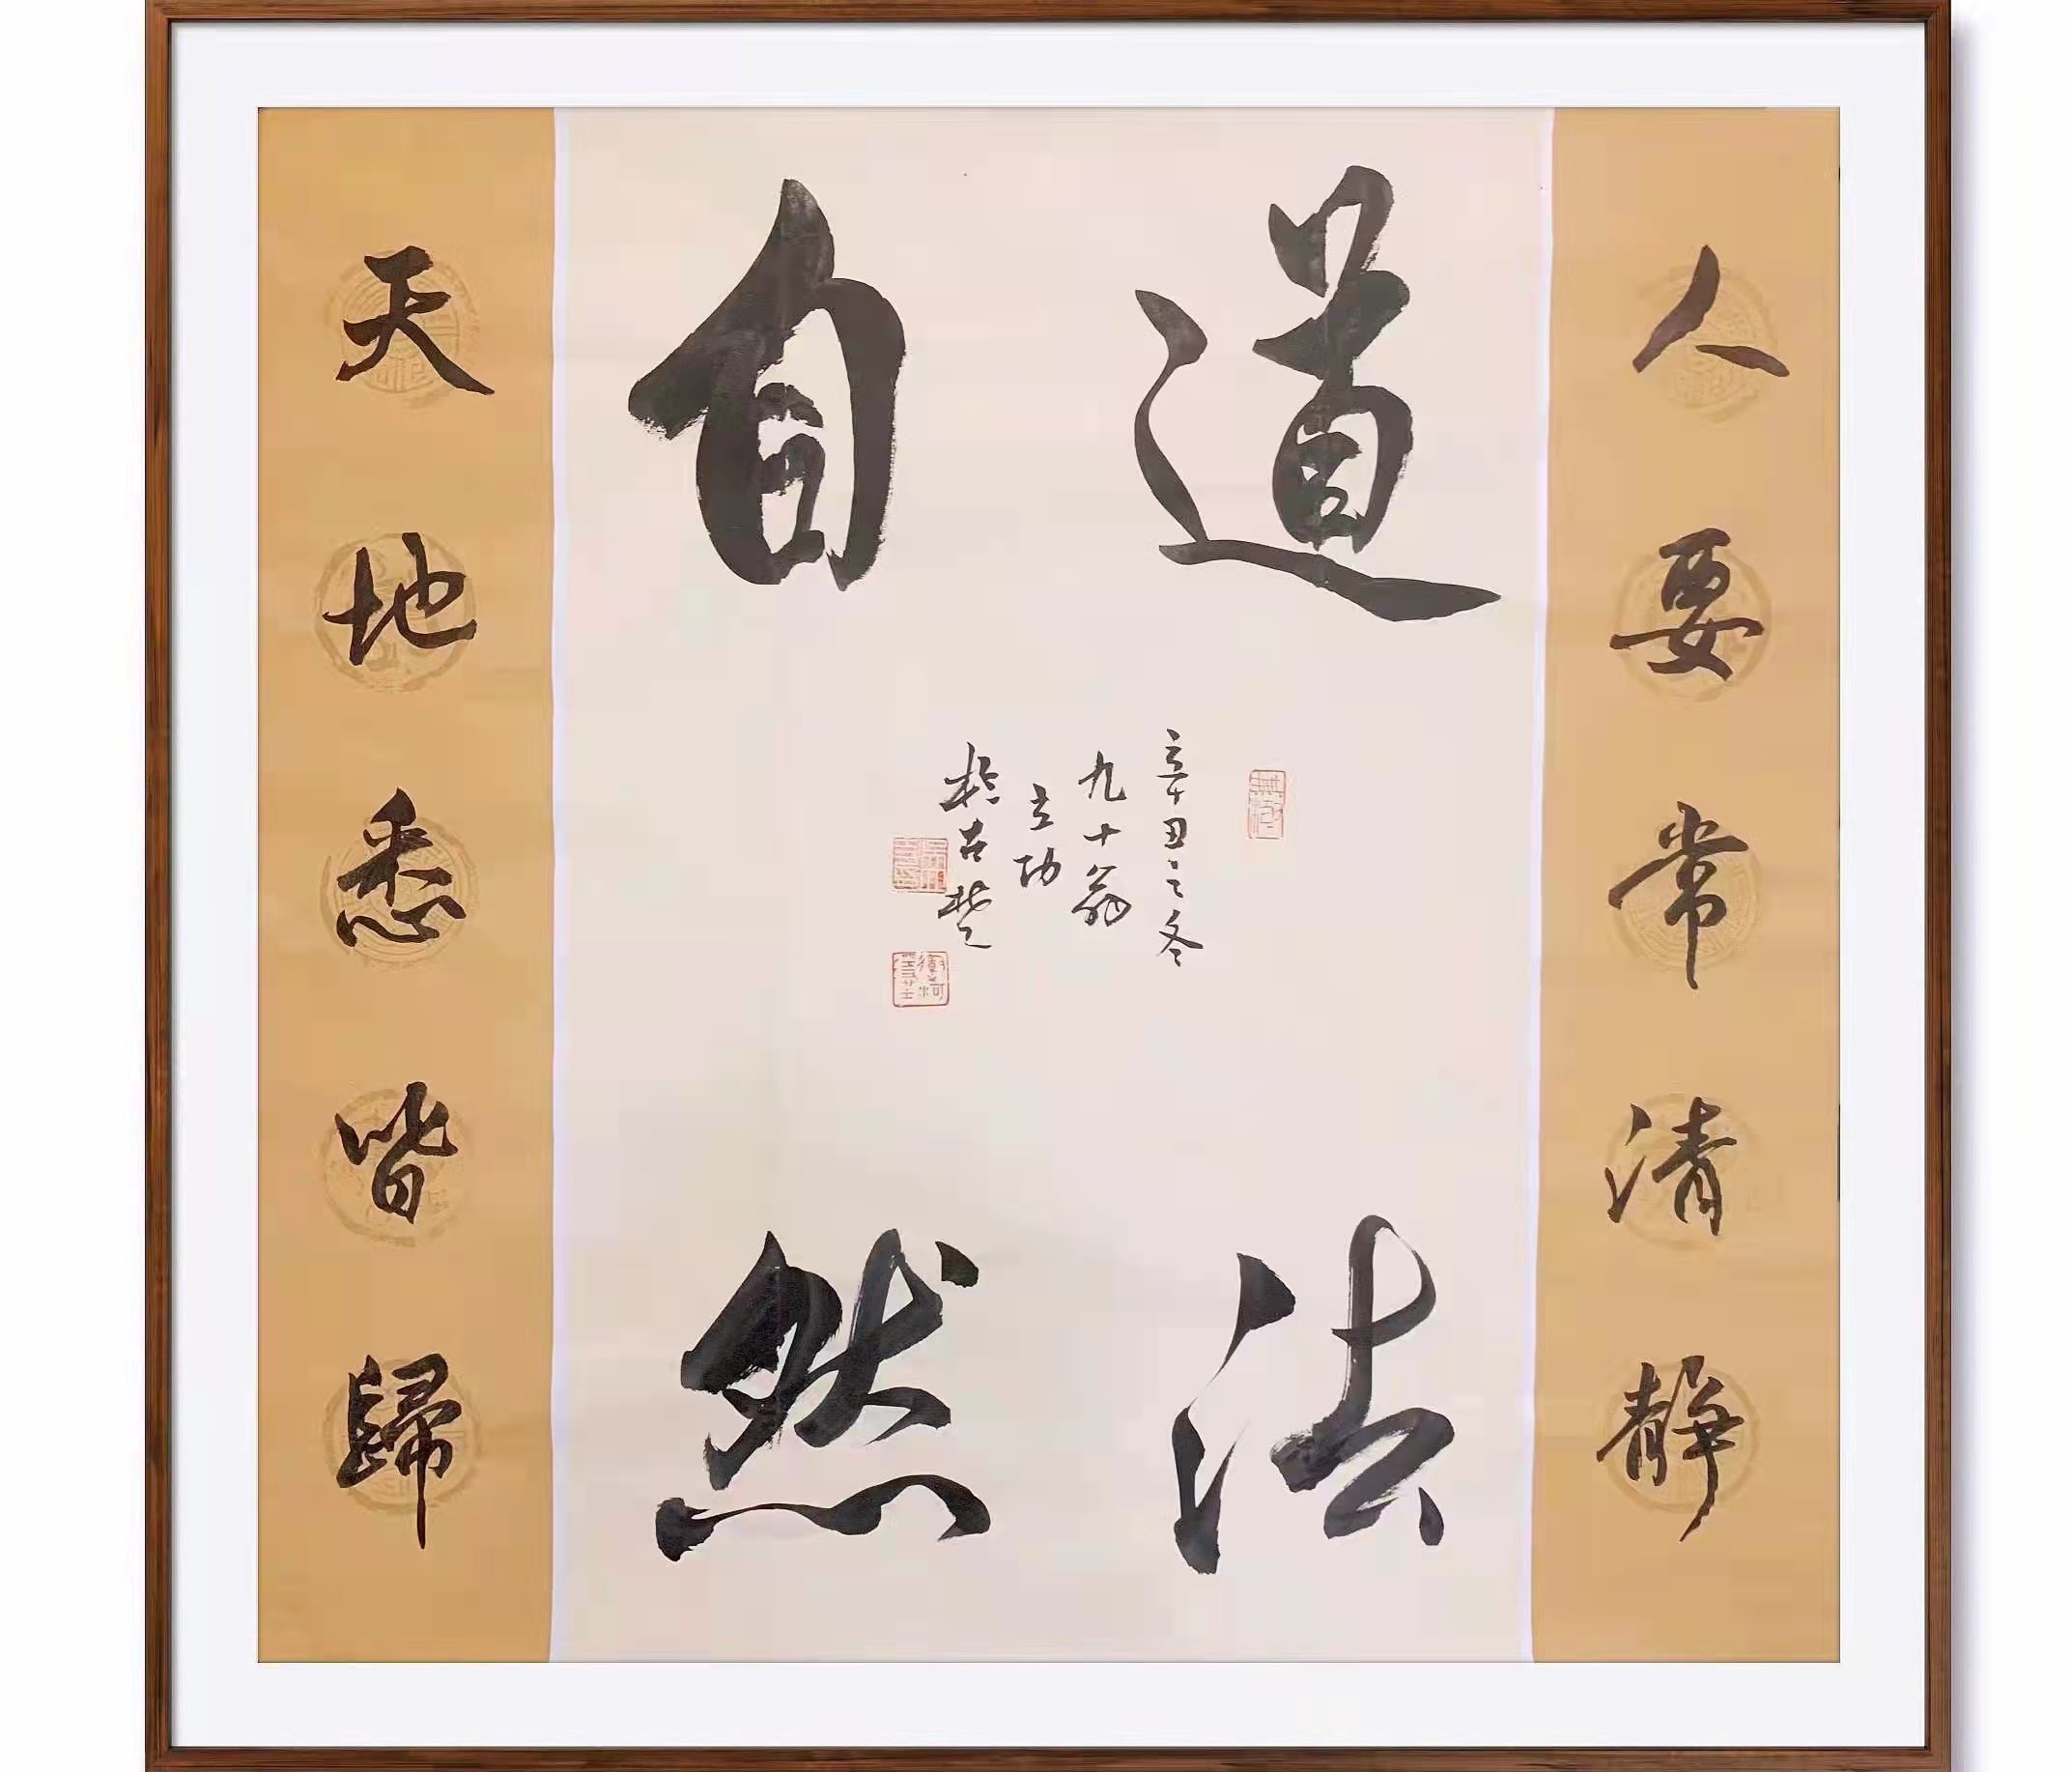 人要常清靜
道法
自然
辛丑之冬
九十翁
立功
於古楚
天地悉皆歸